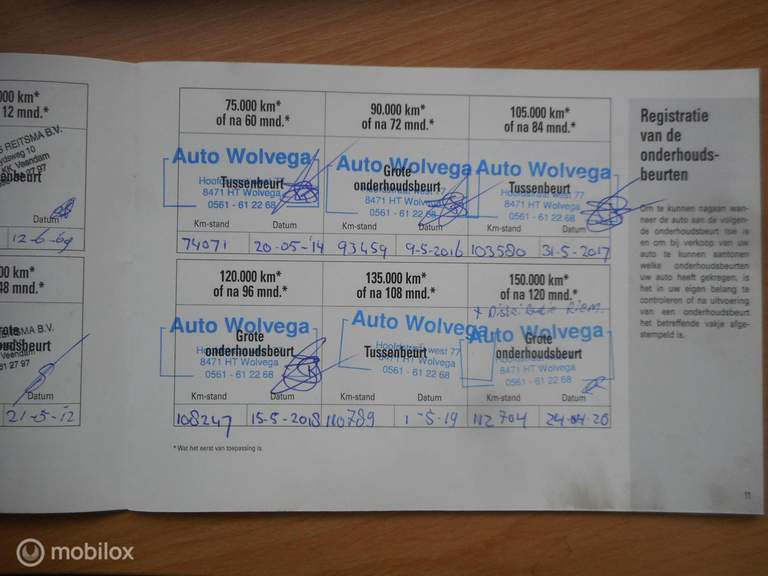 000 km*
12 mnd.*
S REITSMA B.V.
Veendam
Datum
75.000 km*
of na 60 mnd.*
Auto Wolvega
Tussenbeurt
8471 HT Wolvega
0561 - 61 22 68
Km-stand Datum
74071 20-05-'14
90.000 km*
of na 72 mnd.*
Auto Wolvega
Grote
onderhoudsbeurt
8471 HT Wolvega
0561 - 61 22 68
Km-stand Datum
93459 9-5-2016
105.000 km*
of na 84 mnd.*
Auto Wolvega
Tussenbeurt
8471 HT Wolvega
0561 - 61 22 68
Km-stand Datum
103580 31-5-2017
00 km*
48 mnd.*
REITSMA B.V.
Veendam
Datum
21-5-12
120.000 km*
of na 96 mnd.*
Auto Wolvega
Grote
onderhoudsbeurt
8471 HT Wolvega
0561 - 61 22 68
Km-stand Datum
108247 15-5-2018
135.000 km*
of na 108 mnd.*
Auto Wolvega
Hoofdstraat west 77
Tussenbeurt
8471 HT Wolvega
0561 - 61 22 68
Km-stand Datum
110789 1-5-19
150.000 km*
of na 120 mnd.*
+ Distributie Riem.
Auto Wolvega
Grote
onderhoudsbeurt
8471 HT Wolvega
0561 - 61 22 68
Km-stand Datum
112704 24-04-20
* Wat het eerst van toepassing is.
Registratie
van de
onderhouds-
beurten
Om te kunnen nagaan wan-
neer de auto aan de volgen-
de onderhoudsbeurt toe is
en om bij verkoop van uw
auto te kunnen aantonen
welke onderhoudsbeurten
uw auto heeft gekregen, is
het in uw eigen belang te
controleren of na uitvoering
van een onderhoudsbeurt
het betreffende vakje afge-
stempeld is.
11
mobilox